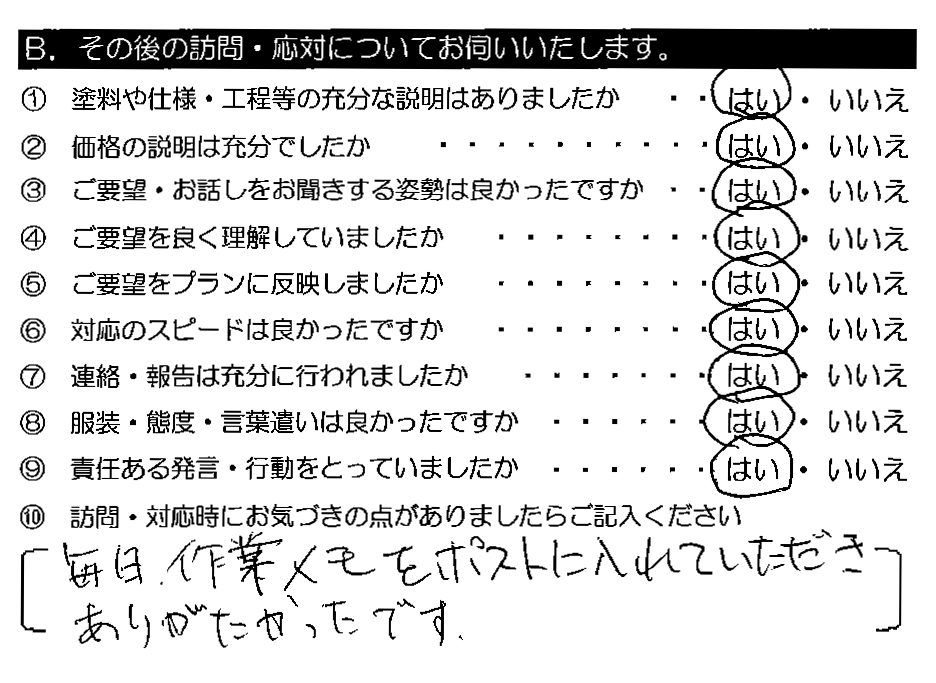 B. その後の訪問・応対についてお伺いいたします。
① 塗料や仕様・工程等の充分な説明はありましたか ・・はい・いいえ
② 価格の説明は充分でしたか ・・・・・・・・・・はい・いいえ
③ ご要望・お話しをお聞きする姿勢は良かったですか ・・はい・いいえ
④ ご要望を良く理解していましたか ・・・・・・・・はい・いいえ
⑤ ご要望をプランに反映しましたか ・・・・・・・・はい・いいえ
⑥ 対応のスピードは良かったですか ・・・・・・・・はい・いいえ
⑦ 連絡・報告は充分に行われましたか ・・・・・・・はい・いいえ
⑧ 服装・態度・言葉遣いは良かったですか ・・・・・・はい・いいえ
⑨ 責任ある発言・行動をとっていましたか ・・・・・・はい・いいえ
⑩ 訪問・対応時にお気づきの点がありましたらご記入ください
毎日、作業メモをポストに入れていただき
ありがたかったです.